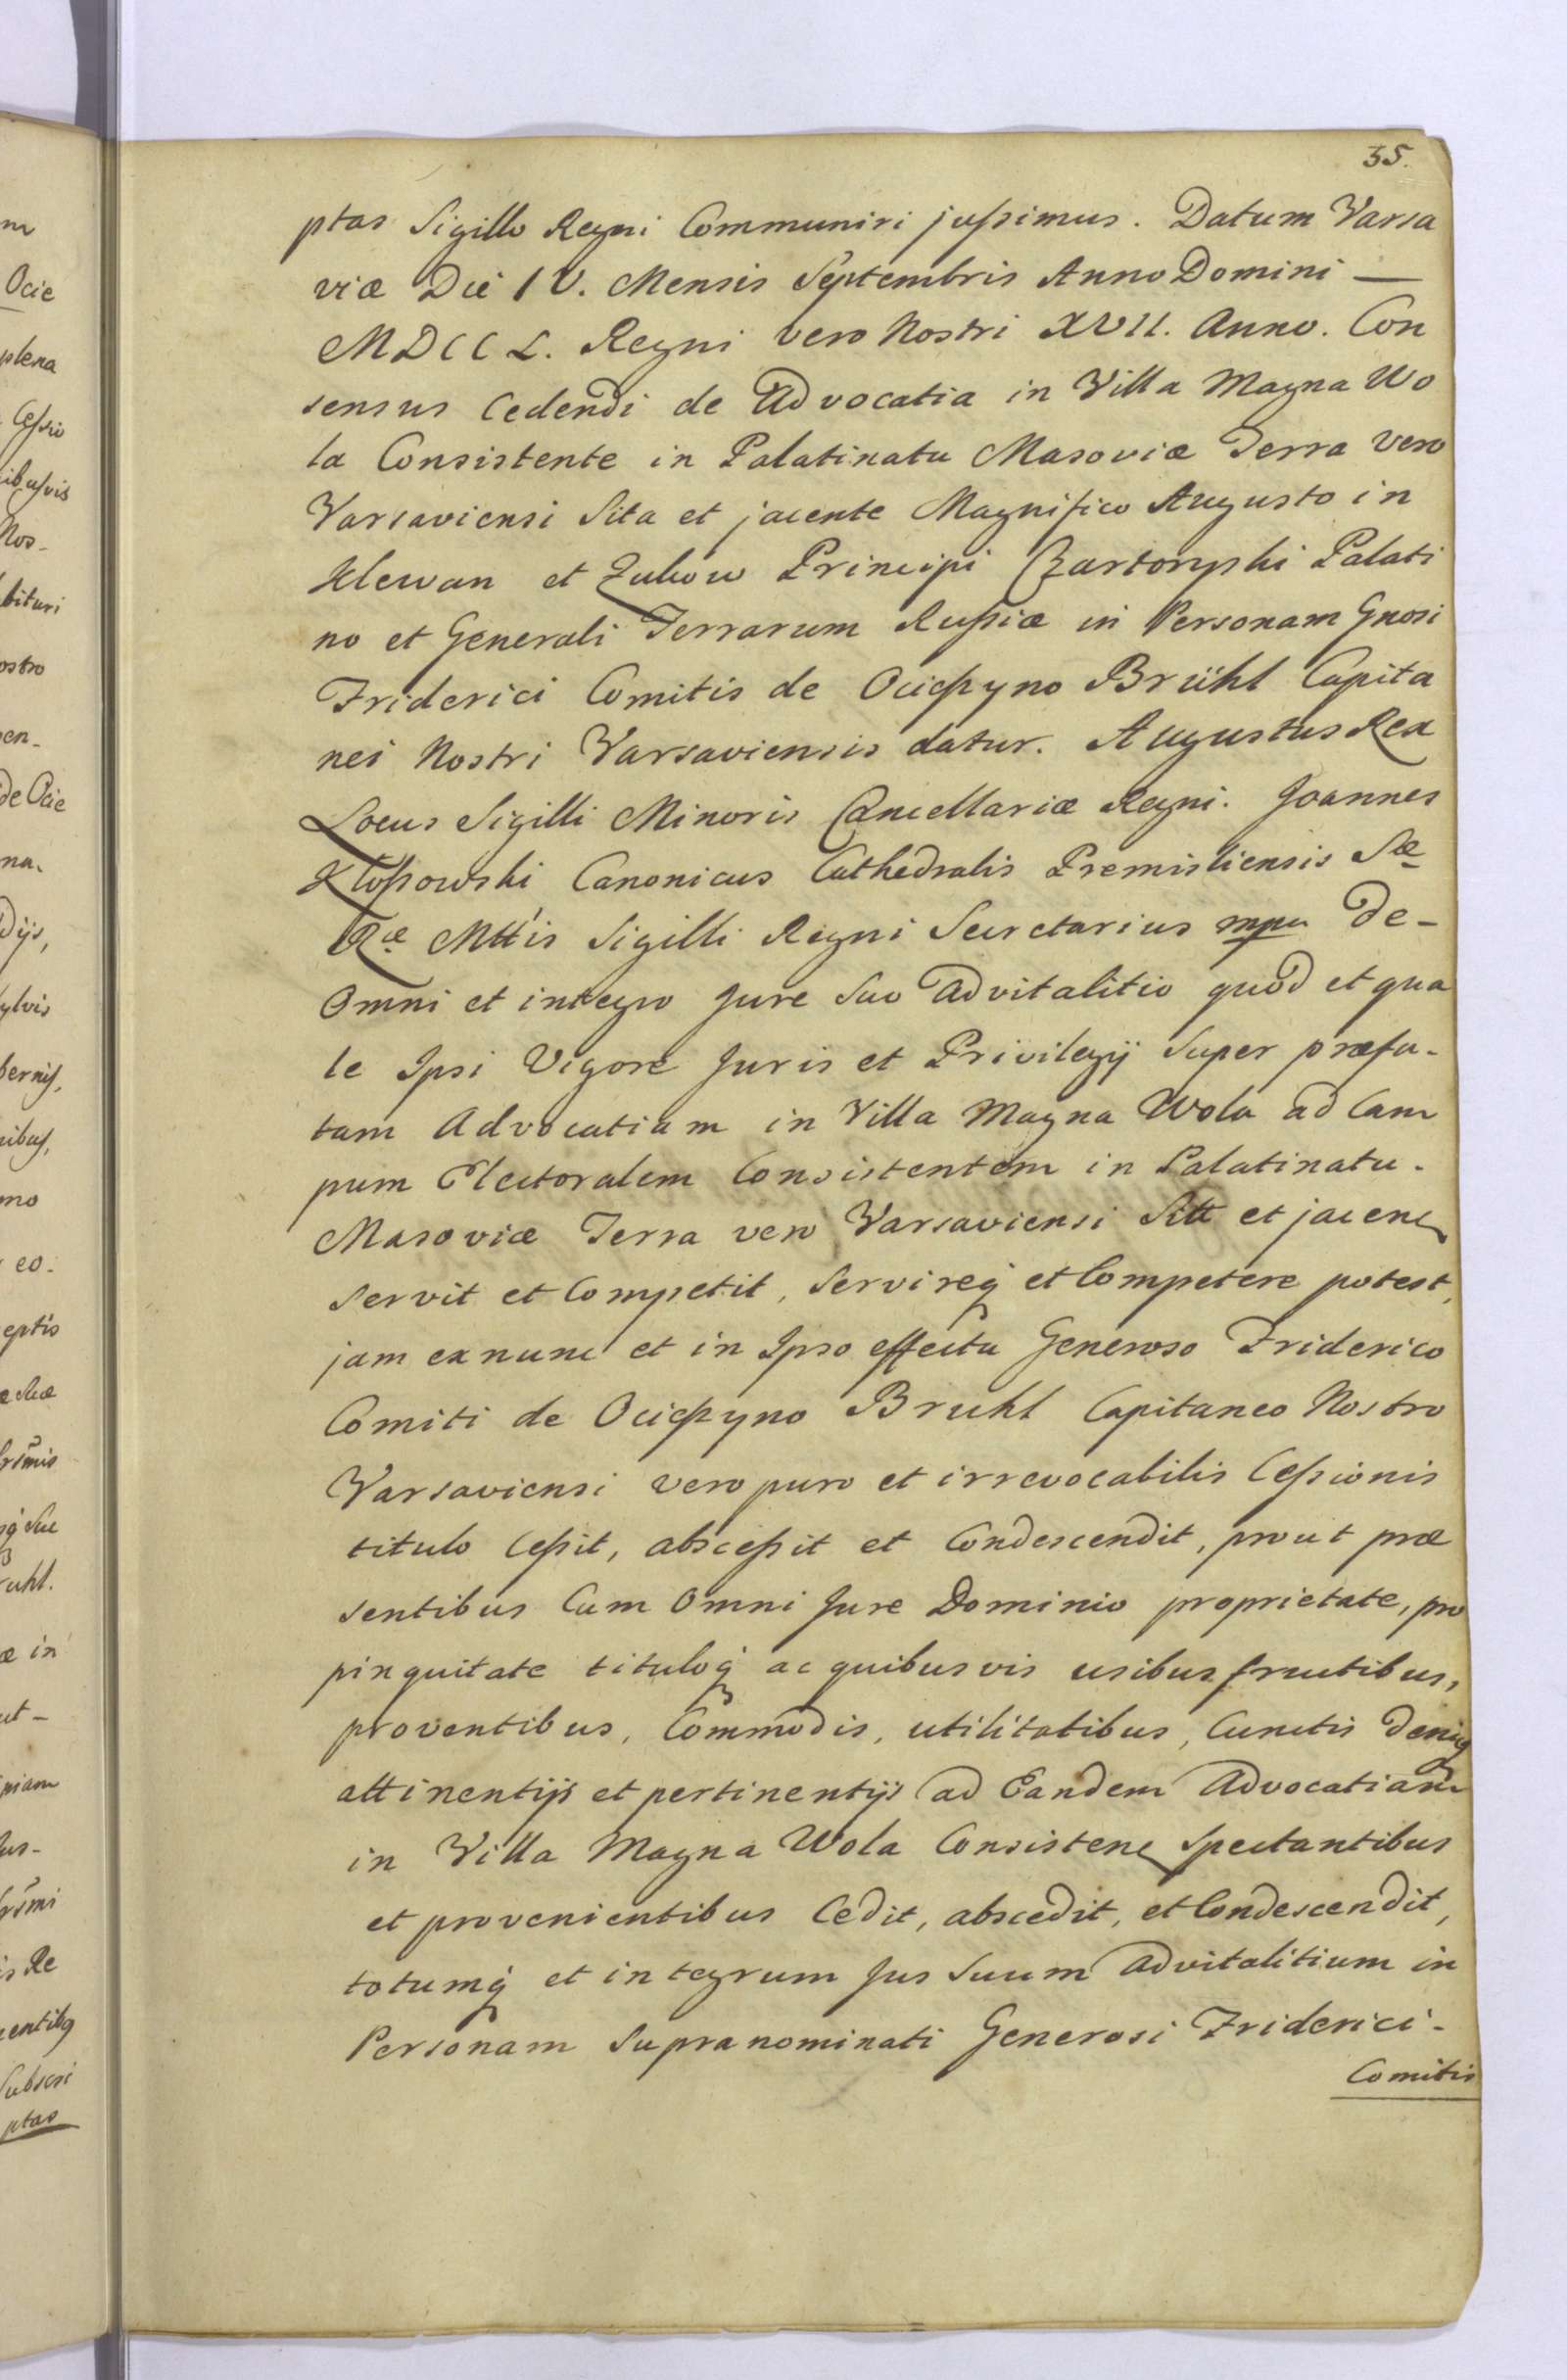 35.
ptas Sigillo Regni Communiri jussimus. Datum Varsa
viæ Die IV. Mensis Septembris Anno Domini —
MDCCL. Regni vero Nostri XVII. Anno. Con
sensus Cedendi de Advocatia in Villa Magna Wo
la Consistente in Palatinatu Masoviæ Terra vero
Varsaviensi Sita et jacente Magnifico Augusto in
Klewan et Zukow Principi Czartoryski Palati
no et Generali Terrarum Russiæ in Personam Gnosi
Friderici Comitis de Ocieszyno Brühl Capita
nei Nostri Varsaviensis datur. Augustus Rex
Locus Sigilli Minoris Cancellariæ Regni. Joannes
Kłossowski Canonicus Cathedralis Premisliensis Sæ
Ræ Mttis Sigilli Regni Secretarius mpu De-
Omni et integro Jure Suo Advitalitio quod et qua
le Ipsi Vigore Juris et Privilegij Super præfa-
tam Advocatiam in Villa Magna Wola ad Cam
pum Electoralem Consistentem in Palatinatu-
Masoviæ Terra vero Varsaviensi Sitt et jacen
servit et Competit, Servireq et Competere potest,
jam exnunc et in Ipso effectu Generoso Friderico
Comiti de Ocieszyno Bruhl Capitaneo Nostro
Varsaviensi vero puro et irrevocabilis Cessionis
titulo Cessit, abscessit et Condescendit, prout præ
sentibus Cum Omni Jure Dominio proprietate, pro
pinquitate tituloq ac quibusvis usibus fructibus,
proventibus, Commodis, utilitatibus, Cunctis Deniq
attinentijs et pertinentijs ad Eandem Advocatiam
in Villa Magna Wola Consisten Spectantibus
et provenientibus Cedit, abscedit, et Condescendit,
totumq et integrum Jus Suum Advitalitium in
Personam Supranominati Generosi Friderici-
Comitis